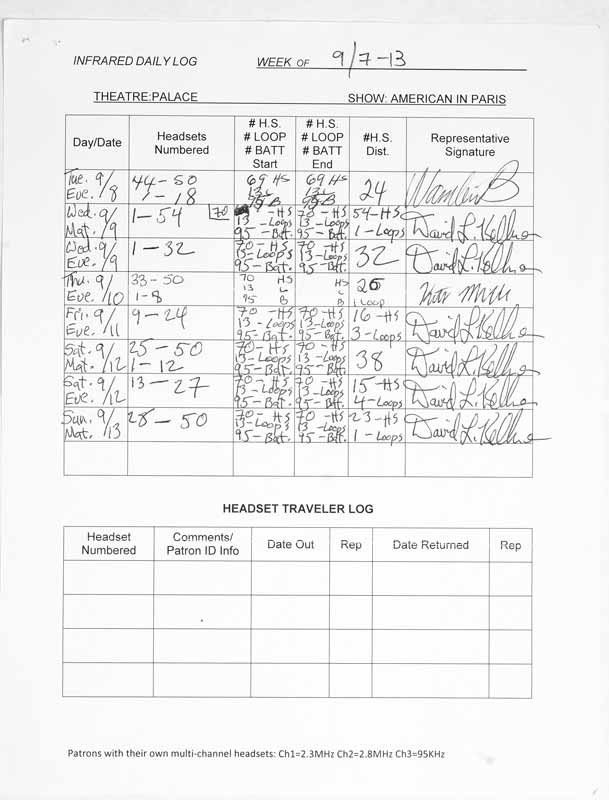 INFRARED DAILY LOG WEEK OF 9/7-13
THEATRE:PALACE SHOW: AMERICAN IN PARIS
Day/Date Headsets Numbered # H.S. # LOOP # BATT Start # H.S. # LOOP # BATT End #H.S. Dist. Representative Signature
Tue. 9/8 Eve. 44-50 1-18 69 HS 13 L 95 B 69 HS 13 L 95 B 24
Wed. 9/9 Mat. 1-54 70 -HS 13 -Loops 95-Bat. 70-HS 13-Loops 95-Bat. 54-HS 1-Loops David L.
Wed. 9/9 Eve. 1-32 70-HS 13-Loops 95-Bat. 70-HS 13-Loops 95-Bat. 32 David L.
Thu. 9/10 Eve. 33-50 1-8 70 HS 13 L 95 B HS L B 26 1 Loop
Fri. 9/11 Eve. 9-24 70-HS 13-Loops 95-Bat. 70-HS 13-Loops 95-Bat. 16-HS 3-Loops David L.
Sat. 9/12 Mat. 25-50 1-12 70-HS 13-Loops 95-Bat. 70-HS 13-Loops 95-Bat. 38 David L.
Sat. 9/12 Eve. 13-27 70-HS 13-Loops 95-Bat. 70-HS 13-Loops 95-Bat. 15-HS 4-Loops David L.
Sun. 9/13 Mat. 28-50 70-HS 13-Loops 95-Bat. 70-HS 13-Loops 95-Bat. 23-HS 1-Loops David L.
HEADSET TRAVELER LOG
Headset Numbered Comments/ Patron ID Info Date Out Rep Date Returned Rep
Patrons with their own multi-channel headsets: Ch1=2.3MHz Ch2=2.8MHz Ch3=95KHz